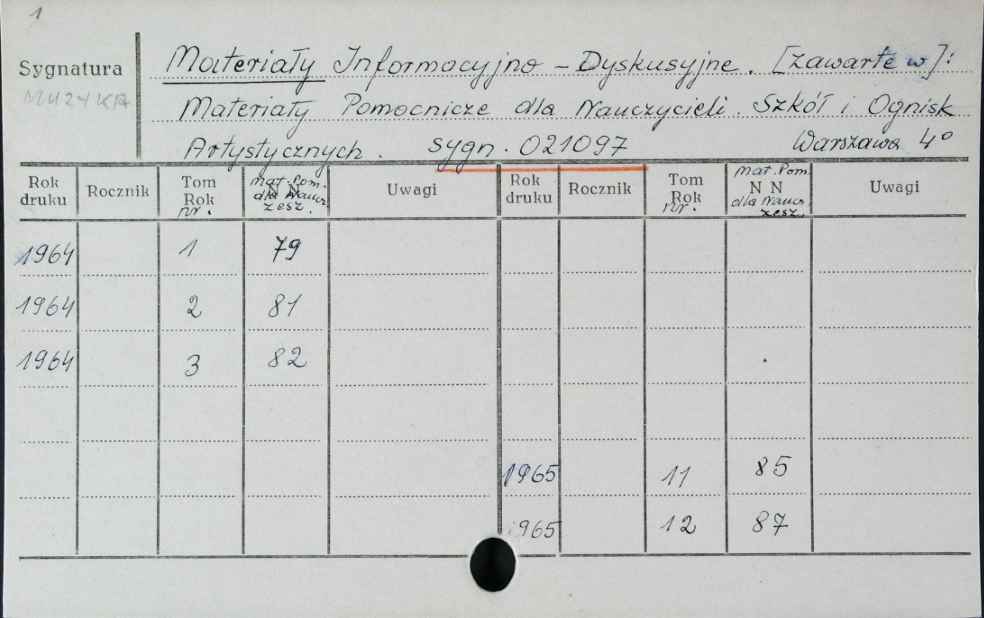 1
Sygnatura
Materiały Informacyjno - Dyskusyjne. [zawarte w]:
Materiały Pomocnicze dla Nauczycieli. Szkół i Ognisk
Artystycznych. sygn. 021097 Warszawa 4°
Rok druku Rocznik Tom Rok nr. Mat. Pom. N N dla Naucz. zesz. Uwagi Rok druku Rocznik Tom Rok nr. Mat. Pom. N N dla Naucz. zesz. Uwagi
1964 1 79
1964 2 81
1964 3 82
1965 11 85
1965 12 87